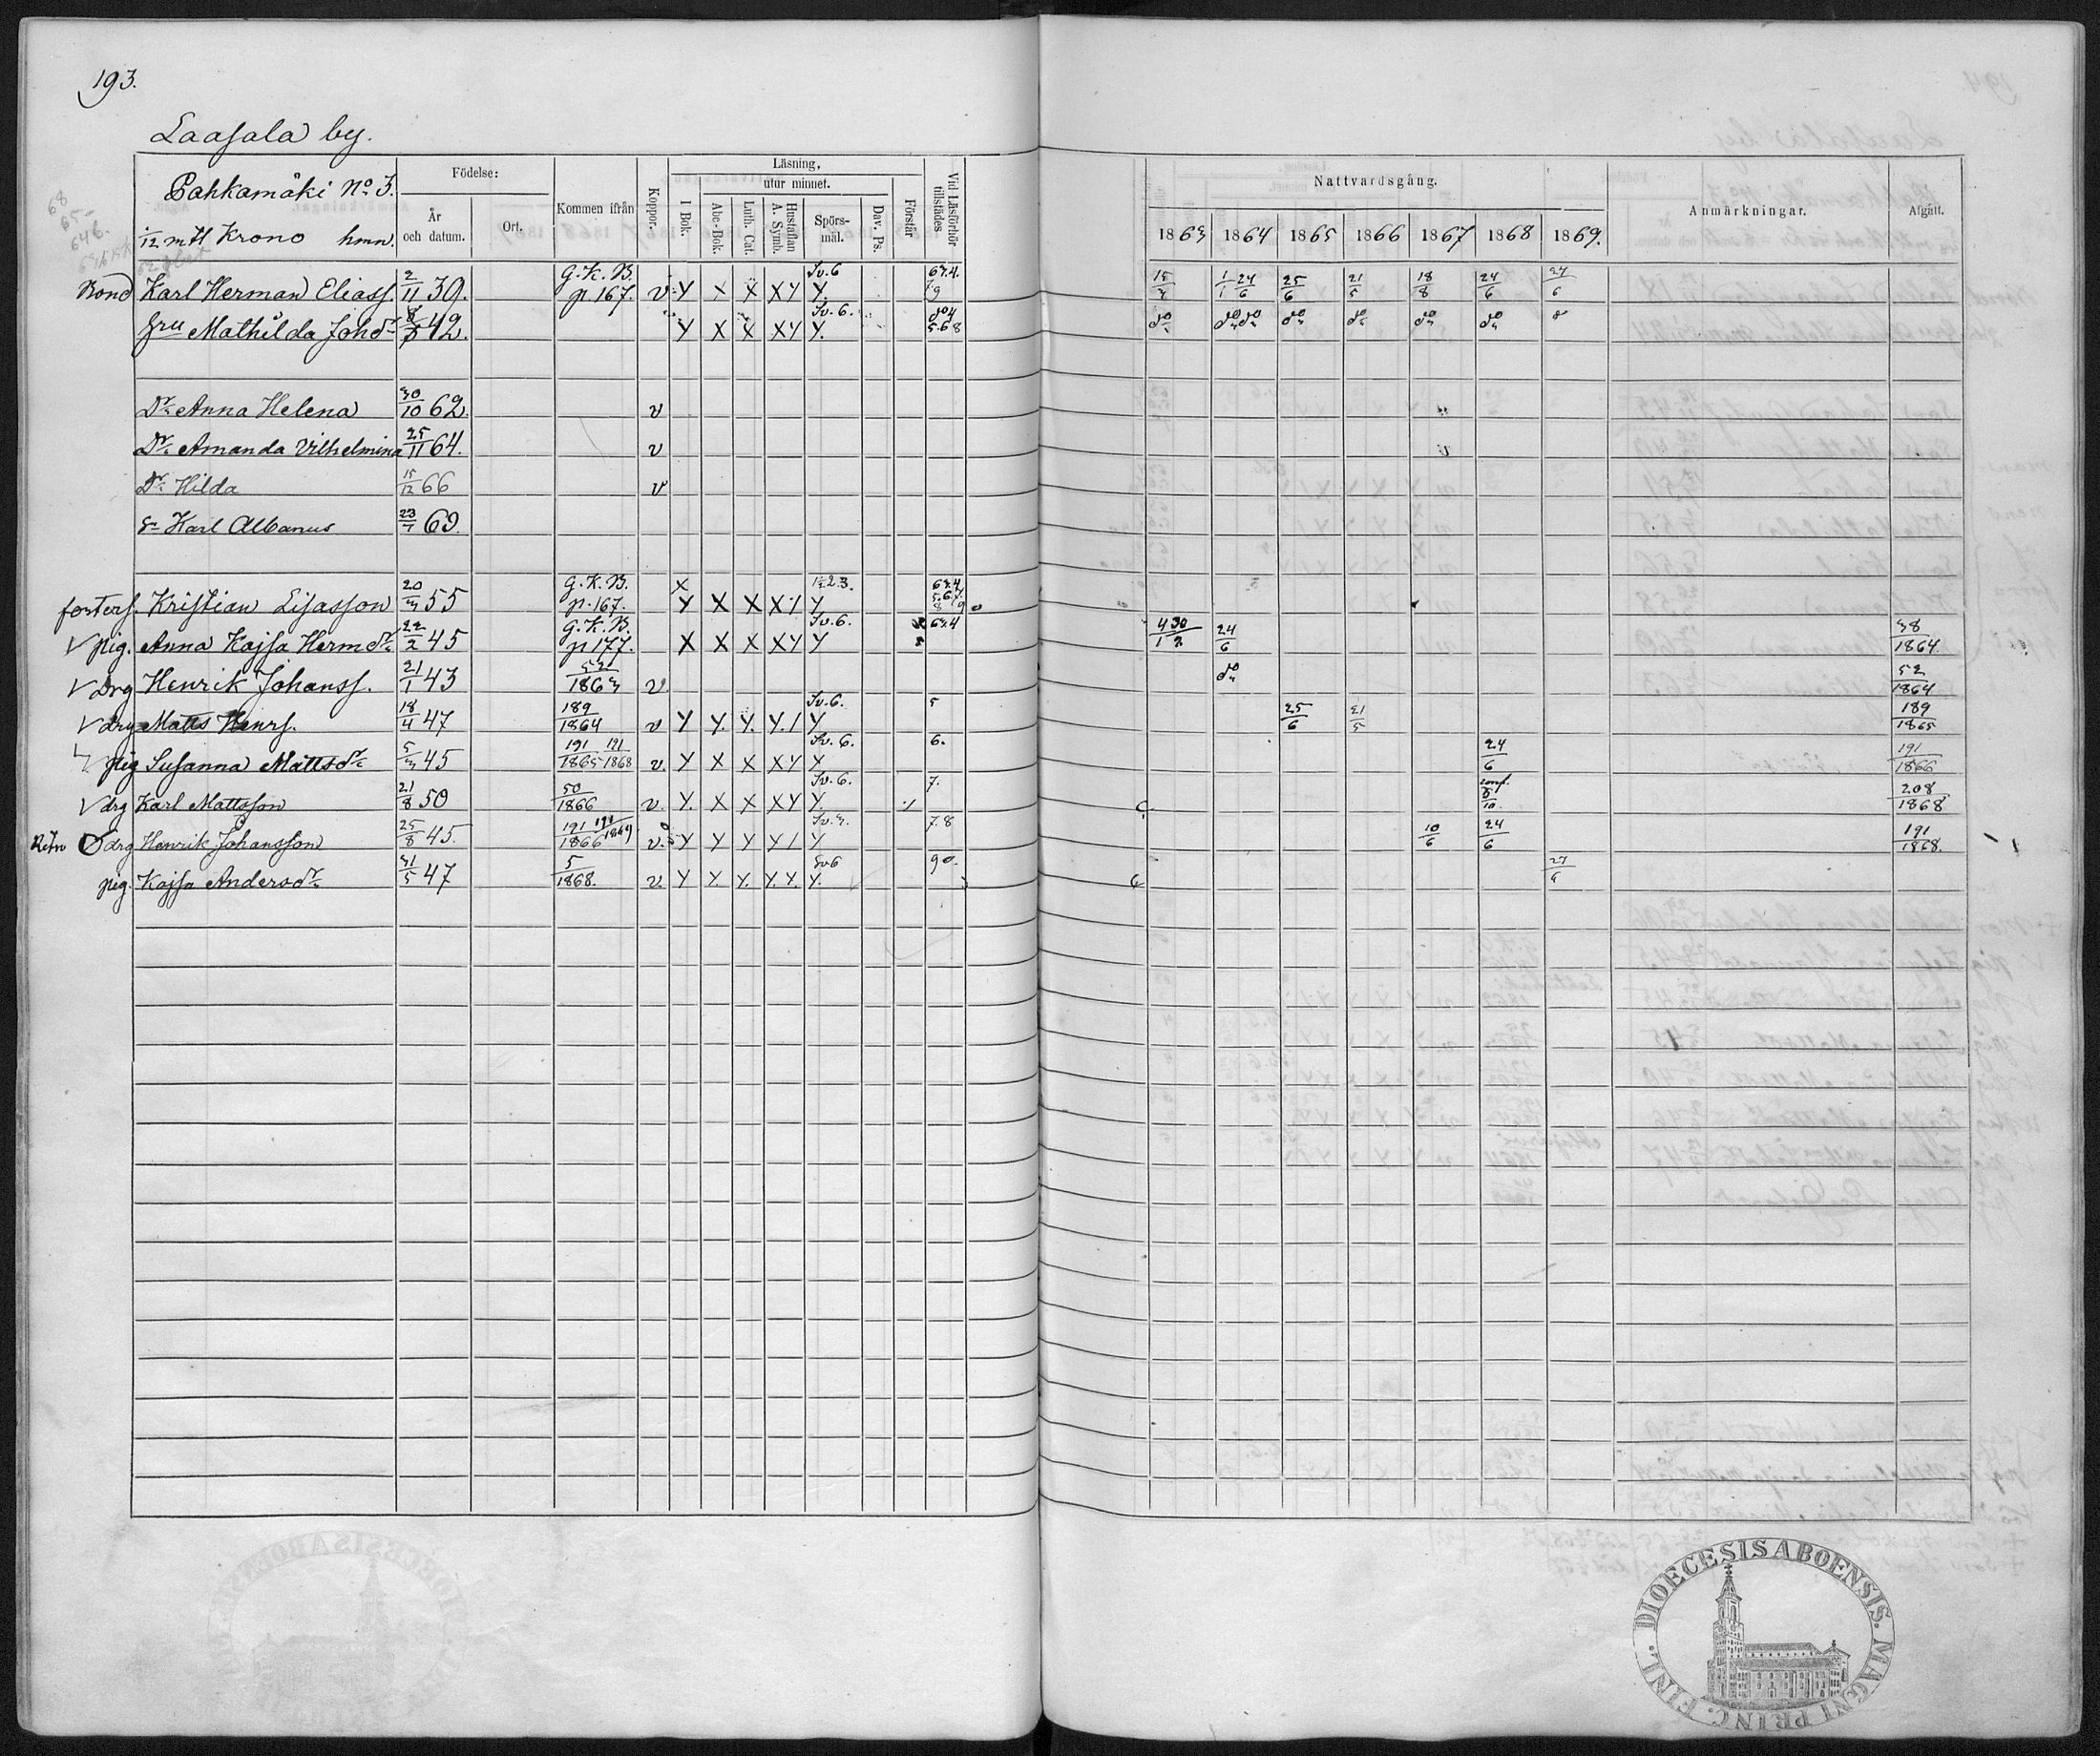 193.
Laasala by.
Pahkamäki No 3.
1/12 mtl Krono hmn.
Födelse:
År och datum.
Ort.
Kommen ifrån
Koppor.
Läsning,
I Bok.
utur minnet.
Abc-Bok.
Luth. Cat.
Hustaflan A. Symb.
Spörsmål.
Dav. Ps.
Förstår
Vid Läsförhör tillstädes
Nattvardsgång.
1863 1864 1865 1866 1867 1868 1869.
Anmärkningar.
Afgått.
Bond Karl Herman Eliass. 2/11 39. G.K.B. p 167. v Y X X XY Y. Sv.6 63.4. 15/3 1/1 24/6 25/6 21/5 18/8 24/6 27/6
Hru Mathilda Johdr 42. Y X X XY Y. Sv.6. do 4 5.6 8 do do do do do do do
Dr Anna Helena 30/10 62. v
Dr Amanda Vilhelmina 25/11 64. v
Dr Hilda 15/12 66 v
S. Karl Albanus 23/7 69.
fosters. Kristian Lisasson 20/3 55 G.K.B. p. 167. X Y X X X/ Y 1.2.3. 63.4 5.6.7. 8 9
V pig. Anna Kajsa Hermdr 22/2 45 G.K.B. p 177. X X X XY Y Sv.6. 63.4 4/1 30/2 24/6 38/1864.
V drg Henrik Johanss. 21/1 43 52/1863 v do 52/1864
V drg Matts Henrs. 18/4 47 189/1864 v Y Y. Y. Y./ Y Sv.6. 5 25/6 21/5 189/1865
pig Susanna Mattsdr 5/3 45 191/1865 191/1868 v. Y X X XY Y Sv.6. 6. 24/6 191/1866
V drg Karl Mattsson 21/8 50 50/1866 v. Y. X X XY Y. Sv.6. 7. 208/1868
drg Henrik Johansson 25/8 45. 191/1866 191/1869 v. Y Y Y Y/ Y 7.8 10/6 24/6 191/1868.
pig. Kajsa Andersdr 31/5 47 5/1868. v. Y Y. Y. Y.Y. Y. Sv6 9 27/6
FINL. DIOECESIS ABOENSIS. MAGNI PRINC.